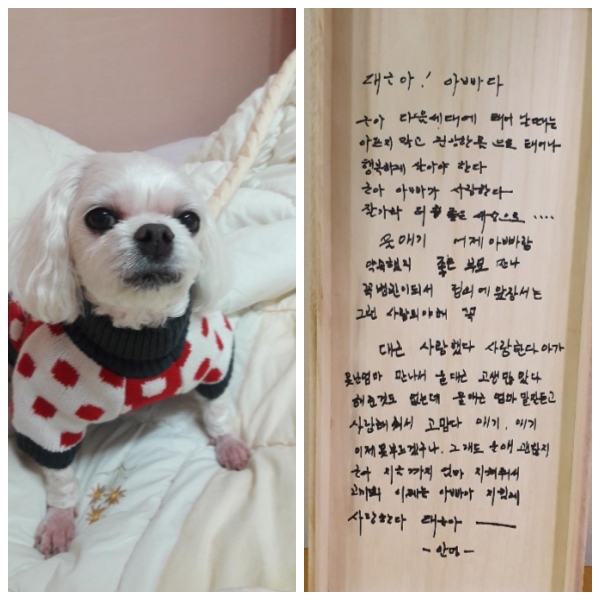 대근아! 아빠다
근아 다음세대에 태어 날때는
아프지 말고 건강한 몸으로 태어나
행복하게 살아야 한다
근아 아빠가 사랑한다
잘가라 더 좋은 세상으로 ....
울애기 어제 아빠랑
약속했지 좋은 부모 만나
꼭 법관이되서 힘의에 앞장서는
그런 사람되야해 꼭
대근 사랑했다 사랑한다 아가
못난엄마 만나서 울대근 고생많았다
해준것도 없는데 울대근 엄마 말만듣고
사랑해줘서 고맙다 애기. 애기
이제 못부르겠구나. 그래도 울애 괜찮지
근아 지금까지 엄마 지켜줘서
고마워 이제는 아빠가 지킬게
사랑한다 대근아 ——
- 안녕 -